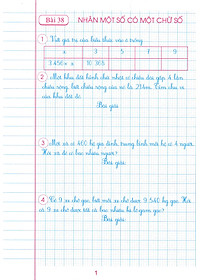 Bài 38 NHÂN MỘT SỐ CÓ MỘT CHỮ SỐ
1 Viết giá trị của biểu thức vào ô trống.
x 3 5 7 9
3 456 x x 10 368
2 Một khu đất hình chữ nhật có chiều dài gấp 4 lần
chiều rộng, biết chiều rộng của nó là 214m. Tính chu vi
của khu đất đó.
Bài giải
3 Một xã có 400 hộ gia đình, trung bình mỗi hộ có 4 người.
Hỏi xã đó có bao nhiêu người?
Bài giải
4 Có 9 xe chở gạo, biết mỗi xe chở được 9 540 kg gạo. Hỏi
cả 9 xe chở được tất cả bao nhiêu ki-lô-gam gạo?
Bài giải
1